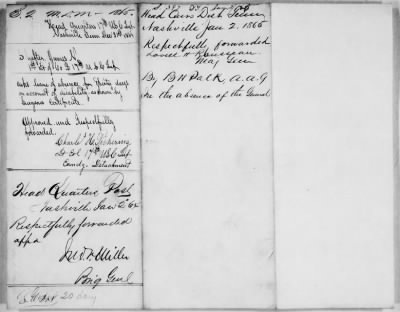 Head Quarters 17th U S C Inf
Nashville Tenn Dec 31st 1864
James K
Co 17 U S C Inf
asks leave of absence for thirty days
on account of disability as shown by
Surgeons certificate.
Approved and respectfully
forwarded.
Charles H Pickering
Lt Col 17th U S C Inf
Comdg. Detachment
Head Quarters Post
Nashville Jan 2 65
Respectfully forwarded
app d
Jno F Miller
Brig Genl
20 days
Head Qurs Dist Tenn
Nashville Jan 2. 1865
Respectfully forwarded
Lovell H Rousseau
Maj Gen
By B H Polk a. a. G
In the absence of the Genral